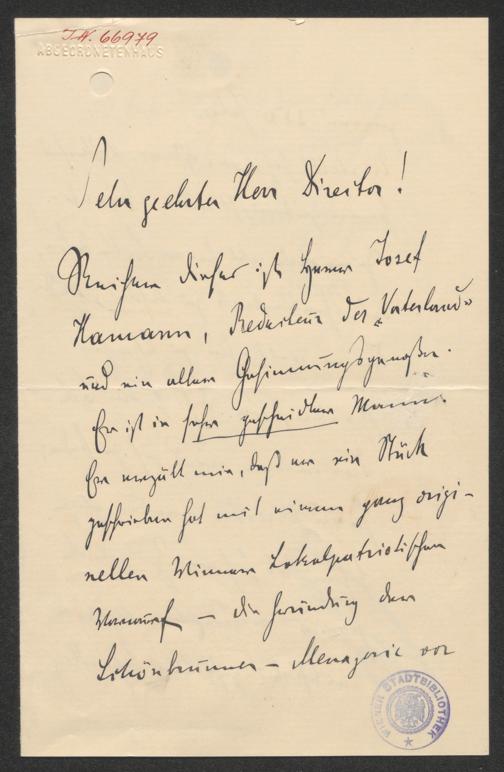 I.N. 66979
ABGEORDNETENHAUS
Sehr geehrter Herr Director!
Überbringer dieses ist Herr Josef
Hamann, Redacteur des „Vaterland“
und ein alter Gesinnungsgenosse.
Er ist ein sehr gescheidter Mann.
Er erzählt mir, daß er ein Stück
geschrieben hat mit einem ganz origi-
nellen Wiener Lokalpatriotischen
Vorwurf – die Gründung der
Schönbrunner-Menagerie vor
WIENER STADTBIBLIOTHEK